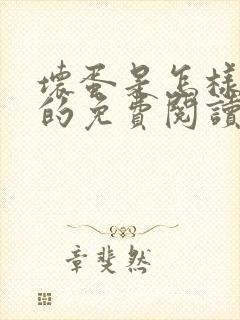 壞蛋是怎樣
的免費閱讀
章斐然